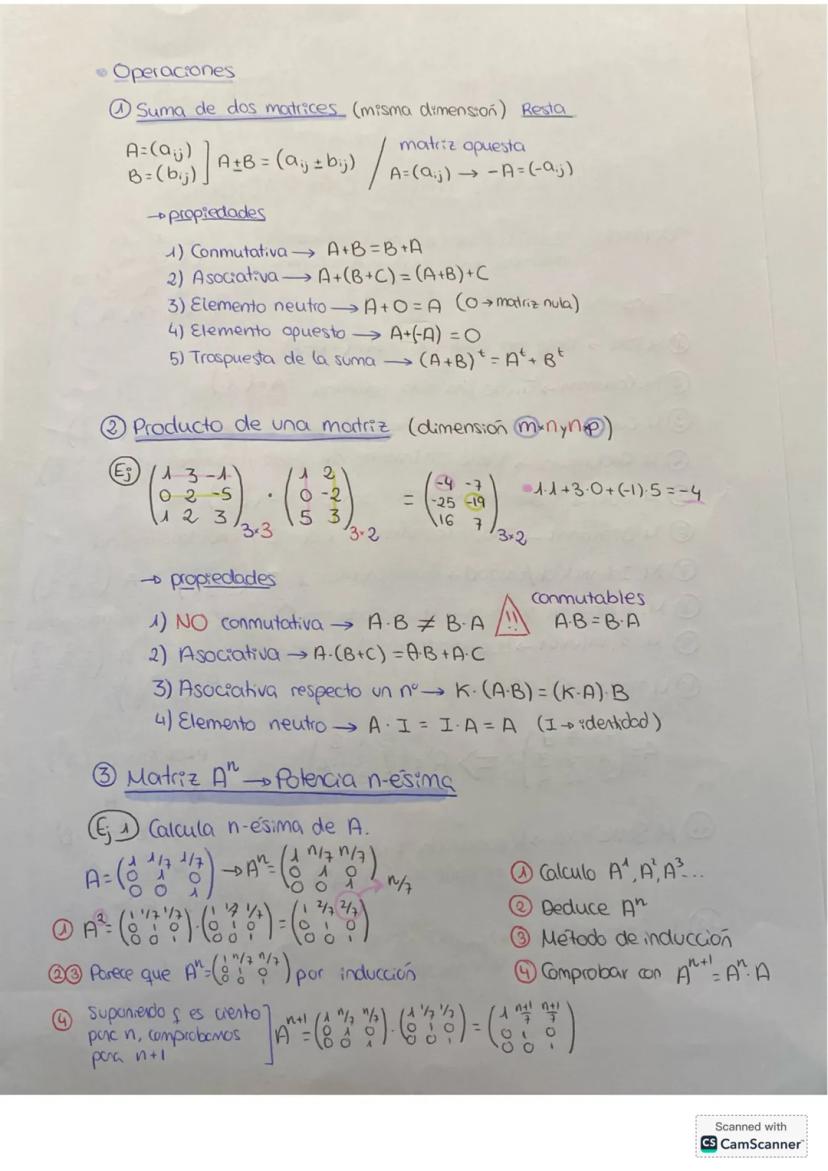 • Operaciones
① Suma de dos matrices (misma dimensión) Resta
A=(aij) B=(bij) ] A±B = (aij ± bij) / matriz opuesta A=(aij) → -A=(-aij)
→ propiedades
1) Conmutativa → A+B=B+A
2) Asociativa → A+(B+C)=(A+B)+C
3) Elemento neutro → A+O=A (O→matriz nula)
4) Elemento opuesto → A+(-A)=O
5) Traspuesta de la suma → (A+B)ᵗ = Aᵗ + Bᵗ
② Producto de una matriz (dimensión m×n y n×p)
Ej (1 3 -1 / 0 2 -5 / 1 2 3)3×3 · (1 2 / 0 -2 / 5 3)3×2 = (-4 -7 / -25 -19 / 16 7)3×2 • 1·1+3·0+(-1)·5=-4
→ propiedades
1) NO conmutativa → A·B ≠ B·A !! conmutables A·B=B·A
2) Asociativa → A·(B+C)=A·B+A·C
3) Asociativa respecto un nº → K·(A·B)=(K·A)·B
4) Elemento neutro → A·I = I·A = A (I→identidad)
③ Matriz Aⁿ → Potencia n-ésima
Ej 1) Calcula n-ésima de A.
A=(1 1/7 1/7 / 0 1 0 / 0 0 1) → Aⁿ=(1 n/7 n/7 / 0 1 0 / 0 0 1) → n/7
① A²=(1 1/7 1/7 / 0 1 0 / 0 0 1)·(1 1/7 1/7 / 0 1 0 / 0 0 1)=(1 2/7 2/7 / 0 1 0 / 0 0 1)
②③ Parece que Aⁿ=(1 n/7 n/7 / 0 1 0 / 0 0 1) por inducción
④ Suponiendo q es cierto
para n, comprobamos
para n+1
] Aⁿ⁺¹=(1 n/7 n/7 / 0 1 0 / 0 0 1)·(1 1/7 1/7 / 0 1 0 / 0 0 1)=(1 n+1/7 n+1/7 / 0 1 0 / 0 0 1)
① Calculo A¹, A², A³...
② Deduce Aⁿ
③ Método de inducción
④ Comprobar con Aⁿ⁺¹=Aⁿ·A
Scanned with
CS CamScanner